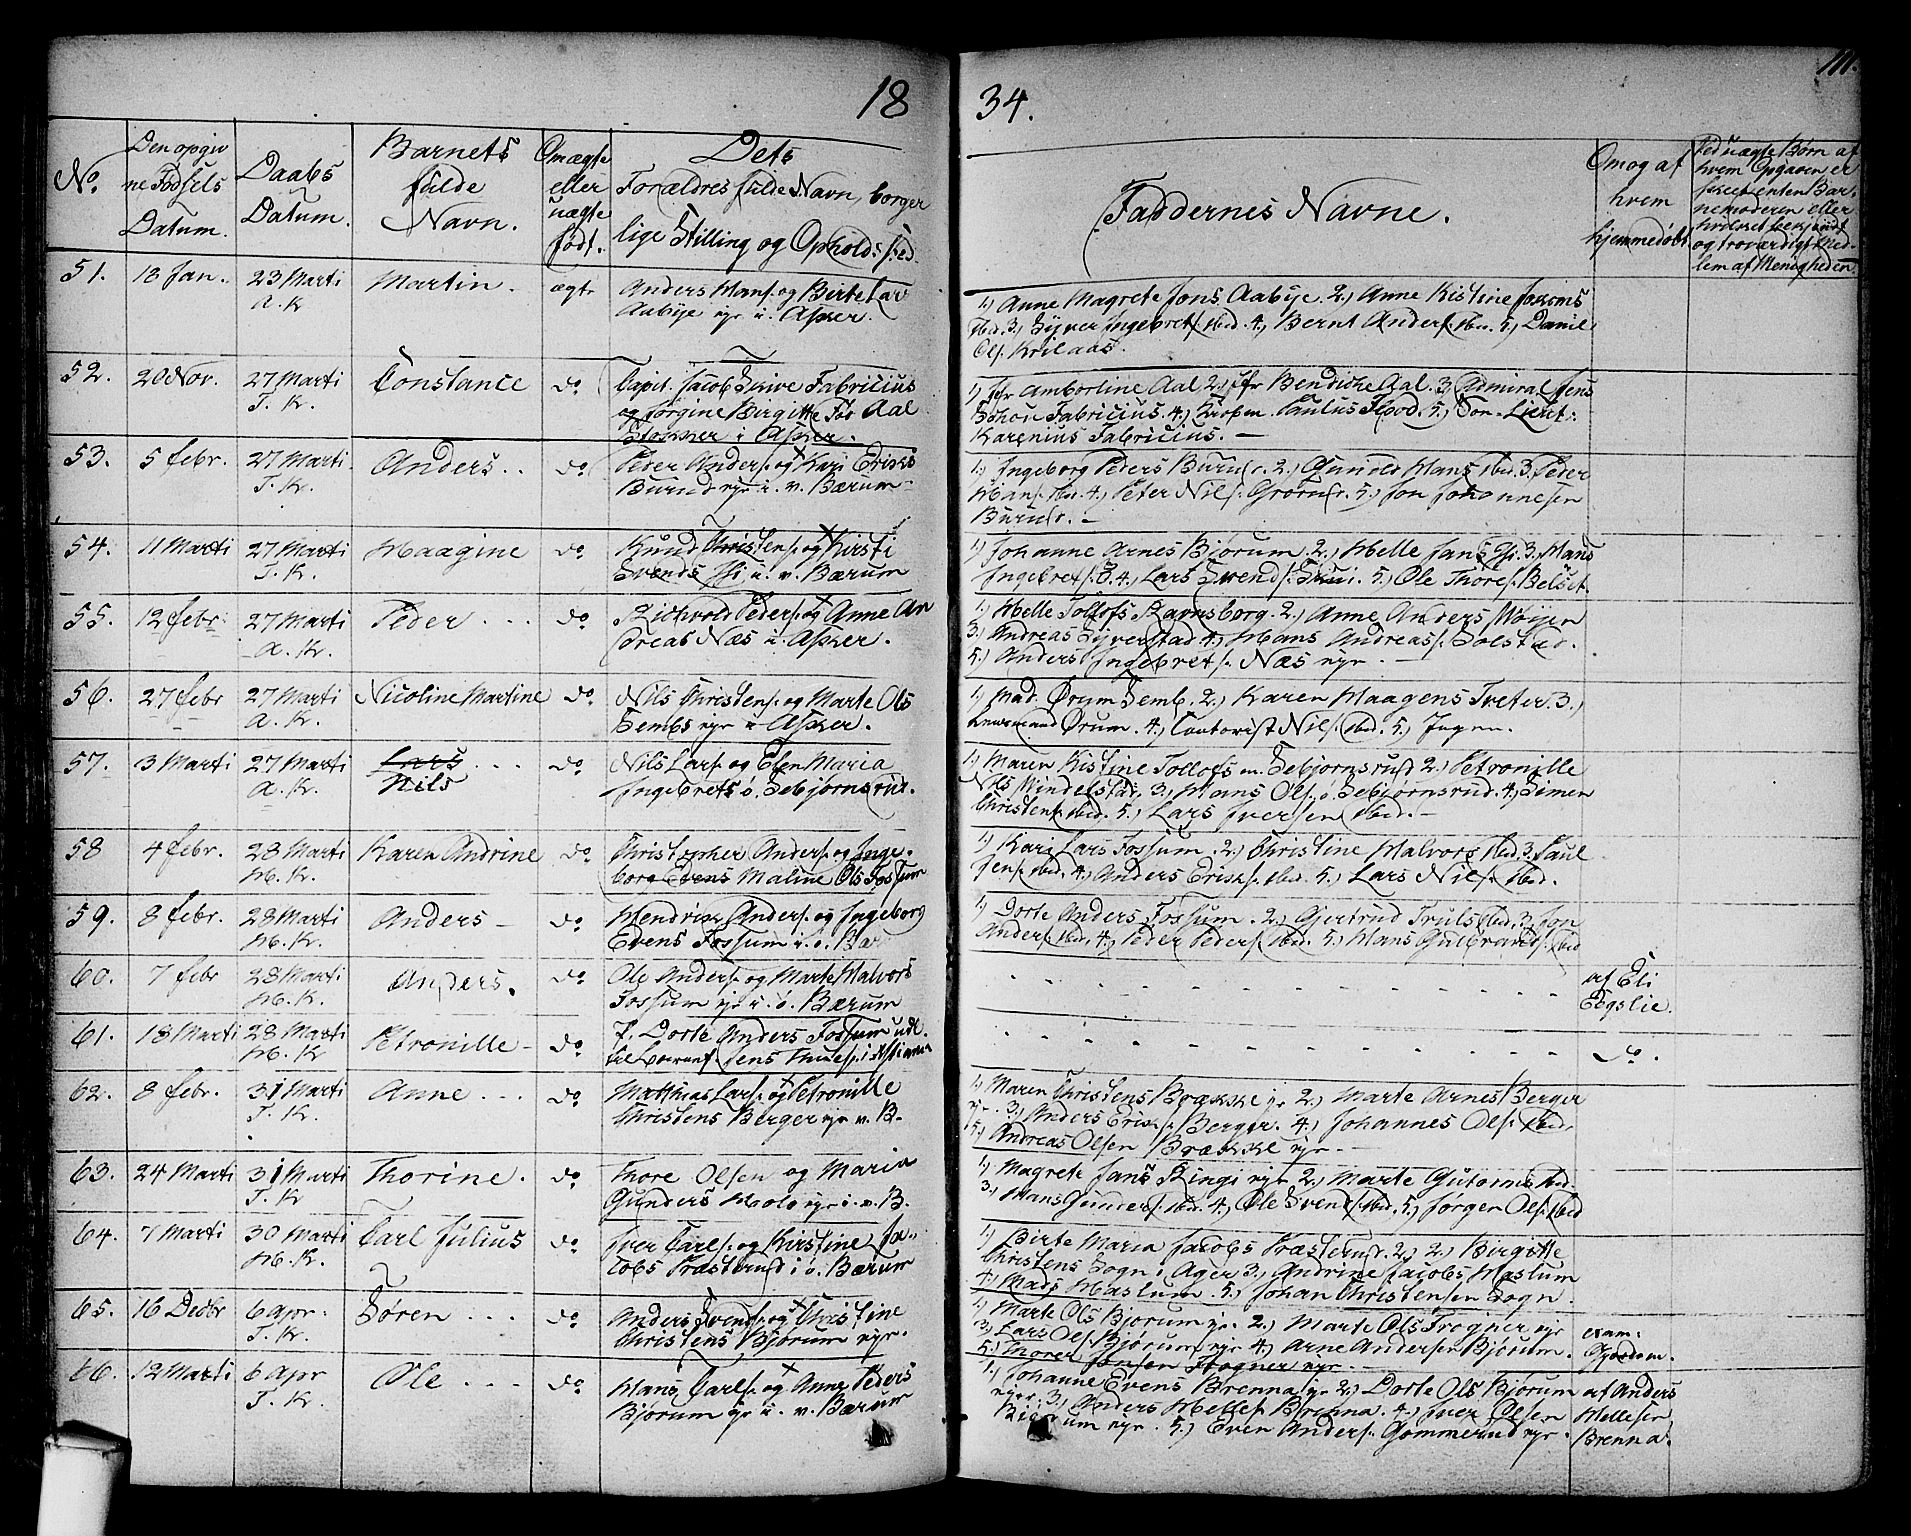 18
34.
111.
No.
Den opgiv
ne Fødsels
Datum.
Daabs
Datum.
Barnets
fulde
Navn.
Om ægte
eller
uægte
født.
Dets
Forældres fulde Navn, borger
lige Stilling og Opholds sted
Faddernes Navne.
Om og af
hvem
hjemmedøbt
Ved uægte Børn af
hvem Opgaven er
skeet enten Bar-
nemoderen eller
hvilket bekjendt
og troværdigt Med-
lem af Menigheden
51. 18 Jan. 23 Marti Martin. ægte Anders Hans. og Birte Lar
A. K Aabye i Asker.
1.) Anne Magrete Jons Aabye. 2.) Anne Kistine
Ibid. 3.) Syver Ingebrets. Ibid. 4.) Bernt Anders. Ibid. 5.) Daniel
Ols.
52. 20 Nov. 27 Marti Constance do Capit. Jacob Fabricius
T. K. og Jørgine Birgitte Fød Aal
i Asker.
1.) Jfr Amborline Aal 2.) Jfr Bendicke Aal. 3.) Admiral Jens
Schou Fabricius. 4.) Paulus 5.) Lieut:
Karenius Fabricius. —
53. 5 febr. 27 Marti Anders.. do Peder Anders. og Kari Eriks
T. K. Burud i v. Bærum
1.) Ingeborg Peders Burud. 2.) Gunild Hans Ibid. 3. Peder
Hans. Ibid. 4.) Peter Nils. 5.) Jon Johannesen
Burud. —
54. 11 Marti 27 Marti Haagine do. Knud Christens. og Kirsti
T. K. Svends i v. Bærum
1.) Johanne Arnes Bjorum. 2.) Helle Jans 3. Hans
Ingebrets. 4.) Lars Svends. 5.) Ole Thores. Belset.
55. 12 febr. 27 Marti Peder ... do. Peders. og Anne An
A. K. dreas Næs i Asker.
1.) Helle Tollofs Ravnsborg. 2.) Anne Anders
3.) Andreas Syverstad 4.) Hans Andreas. Solstad.
5.) Anders Ingebrets. Næs
56. 27 febr 27 Marti Nicoline Martine do. Nils Christens. og Marte Ols
A. K. Sembs i Asker.
1.) Mad. Ørum Semb. 2.) Karen Haagens Treter. 3.)
Lensmand Ørum. 4.) Nils. Ibid. 5.) Ingen.
57. 3 Marti 27 Marti Lars ... do. Nils Lars. og Elen Maria
A. K. Nils Ingebrets Sebjørnsrud.
1.) Maren Kistine Tollofs Sebjornsrud 2.) Petronille
Nils 3.) Hans Ols. Sebjornsrud. 4.) Simen
Christens. Ibid. 5.) Lars Iversen Ibid. —
58 4 febr. 28 Marti Karen Andrine do. Christopher Anders. og Inge-
H. K. borg Evens Maline Ols Fossum
1.) Kari Lars Fossum. 2.) Christine Halvors Ibid. 3. Paul
Jens. Ibid. 4.) Anders Eriks. Ibid. 5.) Lars Nils. Ibid.
59. 8 febr. 28 Marti Anders — do. Hendrik Anders. og Ingeborg
H. K. Evens Fossum i ø. Bær
1.) Dorte Anders Fossum. 2.) Gjertrud Truls Ibid. 3. Jon
Anders. Ibid. 4.) Peder Peders. Ibid. 5.) Hans Gulbrands. Ibid
60. 7 febr 28 Marti Anders. do. Ole Anders. og Marte Halvors
H. K. Fossum i ø. Bærum
af Eli
61. 18 Marti 28 Marti Petronille — do. Dorte Anders Fossum udl.
H. K
do.
62. 8 febr. 31 Marti Anne ... do. Matthias Lars. og Petronille
T. K. Christens Berger v. B.
1.) Maren Christens Brække 2.) Marte Arnes Berger
3.) Anders Eriks. Berger. 4.) Johannes Ols. Ibid.
5.) Andreas Olsen Brække
63. 24 Marti 31 Marti Thorine. do. Thore Olsen og Maria
T. K Gunders i v. B.
1.) Magrete Jans Ringi 2.) Marte Gutorms Ibid.
3.) Hans Gunders. Ibid. 4.) Ole Svends. Ibid. 5.) Jørgen Ols. Ibid
64. 7 Marti 30 Marti Carl Julius do Iver Carls. og Kirstine Ja-
H. K. cobs Præsterud i ø. Bærum
1.) Birte Maria Jacobs Præsterud. 2.) Birgitte
Christens Sogn i Ager 3.) Andrine Jacobs Haslum
4.) Mads Haslum. 5.) Johan Christensen Sogn.
65. 16 Decbr 6 Apr. Søren ... do. Anders Svends. og Christine
T. K. Christens Bjørum
1.) Marte Ols Bjorum 2.) Marte Ols Frogner
3.) Lars Ols. Bjorum 4.) Arne Andersen Bjorum.
5.) Thorer Jonsen Frogner
66. 12 Marti 6 Apr Ole ... do. Hans Carls. og Anne Peders
T. K. Bjorum i v. Bærum
1.) Johanne Evens Brenna 2.) Dorte Ols Bjørum
3.) Anders Helles. Brenna. 4.) Iver Olsen
Bjorum 5.) Even Anders. Gommerud
af Anders
Hellesen
Brenna.